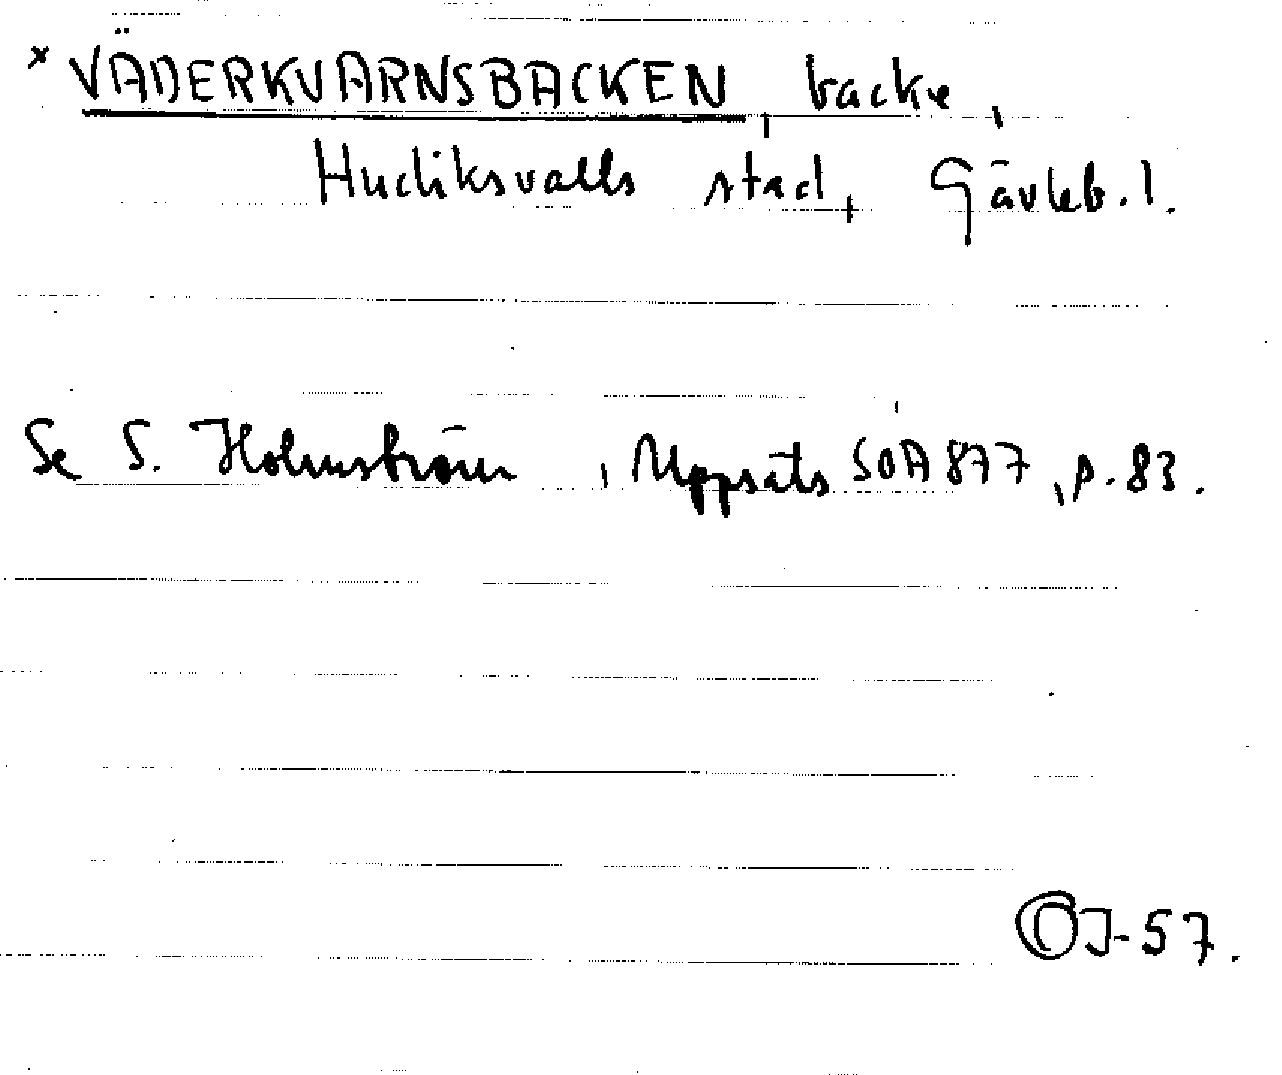 * VÄDERKVARNSBACKEN, backe,
Hudiksvalls stad, Gävleb. l.
Se S. Holmström, Uppsats SOA 877, p. 83.
OJ-57.